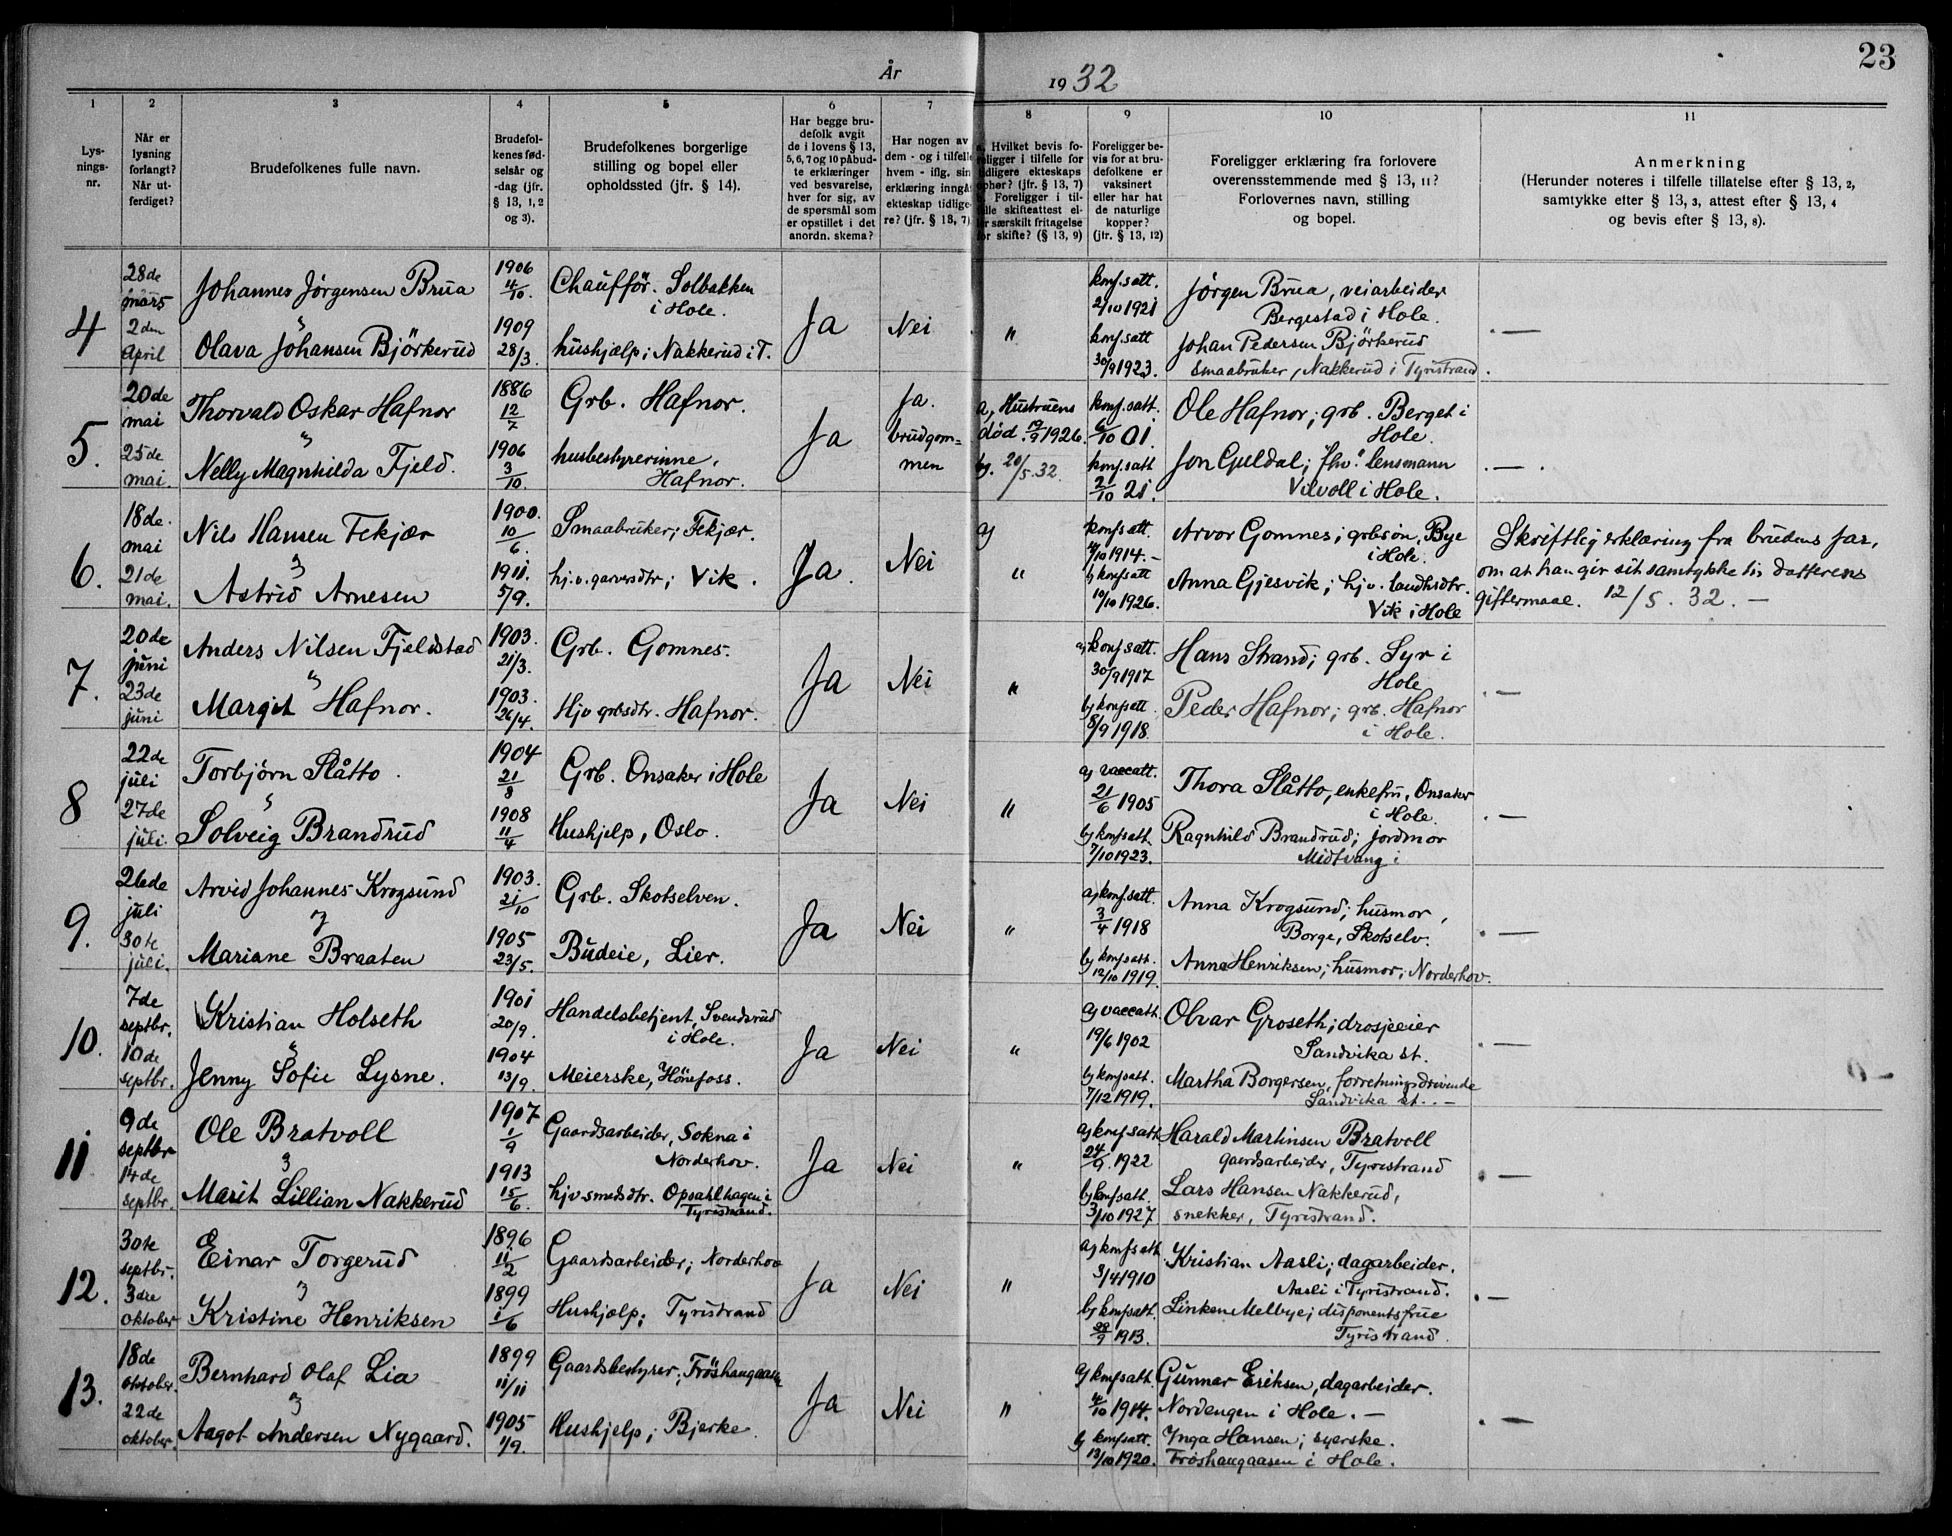 23
År 1932
1 2 3 4 5 6 7 8 9 10 11
Lysnings-nr.
Når er lysning forlangt? Når utferdiget?
Brudefolkenes fulle navn.
Brudefolkenes fødselsår og -dag (jfr. § 13, 1, 2 og 3).
Brudefolkenes borgerlige stilling og bopel eller opholdssted (jfr. § 14).
Har begge brudefolk avgitt de i lovens § 13, 5, 6, 7 og 10 påbudte erklæringer ved besvarelse, hver for sig, av de spørsmål som er opstillet i det anordn. skema?
Har nogen av dem - og i tilfelle hvem - iflg. sin erklæring inngått ekteskap tidligere? (jfr. § 13, 7)
Hvilket bevis foreligger i tilfelle for tidligere ekteskaps ophør? (jfr. § 13, 7) Foreligger i tilfelle skifteattest eller særskilt fritagelse for skifte? (§ 13, 9)
Foreligger bevis for at brudefolkene er vaksinert eller har hatt de naturlige kopper? (jfr. § 13, 12)
Foreligger erklæring fra forlovere overensstemmende med § 13, 11? Forlovernes navn, stilling og bopel.
Anmerkning
(Herunder noteres i tilfelle tillatelse efter § 13, 2, samtykke efter § 13, 3, attest efter § 13, 4 og bevis efter § 13, 8).
4
28de mars
2den April
Johannes Jørgensen Brua
Olava Johansen Björkerud
1906 4/10.
1909 28/3.
Chaufför. Solbakken i Hole.
hushjælp; Nakkerud i T.
Ja
Nei
"
konf.satt. 2/10 1921
konf.satt 30/9 1923.
Jørgen Brua, veiarbeider
Bergestad i Hole.
Johan Pedersen Björkerud
smaabruker, Nakkerud i Tyristrand.
5.
20de mai
25de mai.
Thorvald Oskar Hafnor
Nelly Magnhilda Fjeld.
1886 12/7
1906 3/10.
Grb. Hafnor.
husbestyrerinne, Hafnor.
Ja
Ja. brudgommen
a, Hustruens død. 19/9 1926.
b. 20/5.32.
konf.satt. 6/10 01.
konf.satt 2/10 21.
Ole Hafnor; grb. Berget i Hole.
Jon Guldal; fhv. lensmann
Vilvoll i Hole.
6.
18de. mai
21de mai.
Nils Hansen Fekjær
Astrid Arnesen
1900. 10/6.
1911. 5/9.
Smaabruker; Fekjær.
hj.v. garversdtr; Vik.
Ja.
Nei
a)
"
konf.satt. 4/10 1914.-
b) konf.satt 10/10 1926.
Arvor Gomnes; grbsøn, Bye i Hole.
Anna Gjesvik; hjv. landhsdtr.
Vik i Hole
Skriftlig erklæring fra brudens far,
om at han gir sit samtykke til datterens
giftermaal. 12/5. 32. —
7.
20de juni
23de juni
Anders Nilsen Fjeldstad
Margit Hafnor.
1903. 21/3.
1903. 26/4.
Grb. Gomnes.
Hjv grbsdtr. Hafnor.
Ja
Nei
"
a) konf.satt. 30/9 1917
b) konf.satt. 8/9 1918.
Hans Strand; grb. Syr i Hole
Peder Hafnor; grb. Hafnor i Hole.
8
22de juli
27de juli.
Torbjörn Slåtto.
Solveig Brandrud
1904 21/8
1908 11/4
Grb. Onsaker i Hole
Hushjelp, Oslo.
Ja
Nei
"
a) vaccatt. 21/6 1905
b) konf.satt. 7/10 1923.
Thora Slåtto, enkefru, Onsaker i Hole.
Ragnhild Brandrud; jordmor
Midtvang i
9.
26de juli
30te juli.
Arvid Johannes Krogsund
Mariane Braaten
1903. 21/10
1905 23/5.
Grb. Skotselven.
Budeie, Lier.
Ja
Nei
"
a) konf.satt. 3/4 1918
b) konf.satt. 12/10 1919.
Anna Krogsund; husmor,
Borge, Skotselv.
Anna Henriksen; husmor; Norderhov.
10.
7de septbr.
10de septbr.
Kristian Holseth
Jenny Sofie Lysne.
1901 20/9.
1904 13/9.
Handelsbetjent, Svendsrud i Hole.
Meierske, Hönefoss.
Ja
Nei
"
a) vaccatt. 19/6 1902
b) konf.satt. 7/12 1919.
Olvar Groseth; drosjeeier
Sandvika st.
Martha Borgersen, forretningsdrivende
Sandvika st. . —
11
9de septbr
14de septbr.
Ole Bratvoll
Marit Lillian Nakkerud
1907 1/9
1913 15/6.
Gaardsarbeider, Sokna i Norderhov.
hjv smedsdtr. Opsahlhagen i Tyristrand.
Ja
Nei
"
a) konf.satt 24/9. 1922
b) konf.satt. 3/10 1927
Harald Martinsen Bratvoll
gaardsarbeider, Tyristrand
Lars Hansen Nakkerud,
snekker, Tyristrand.
12.
30te septbr.
3dre oktober
Einar Torgerud
Kristine Henriksen
1896 11/2
1899 1/6
Gaardsarbeider; Norderhov
Hushjælp; Tyristrand
Ja
Nei
"
a) konf.satt. 3/4 1910
b) konf.satt. 28/9 1913.
Kristian Aasli; dagarbeider.
Aasli i Tyristrand.
Linken Melbye; disponentsfrue
Tyristrand.
13.
18de oktober.
22de oktober.
Bernhard Olaf Lia
Aagot Andersen Nygaard.
1899 11/11
1905 1/9.
Gaardsbestyrer; Fröshaugaasen
Hushjelp; Bjerke.
Ja
Nei
"
a) konf.satt. 4/10 1914.
b) konf.satt. 13/10 1920.
Gunnar Eriksen, dagarbeider.
Nordengen i Hole. —
Inga Hansen; syerske.
Frøshaugaasen i Hole.